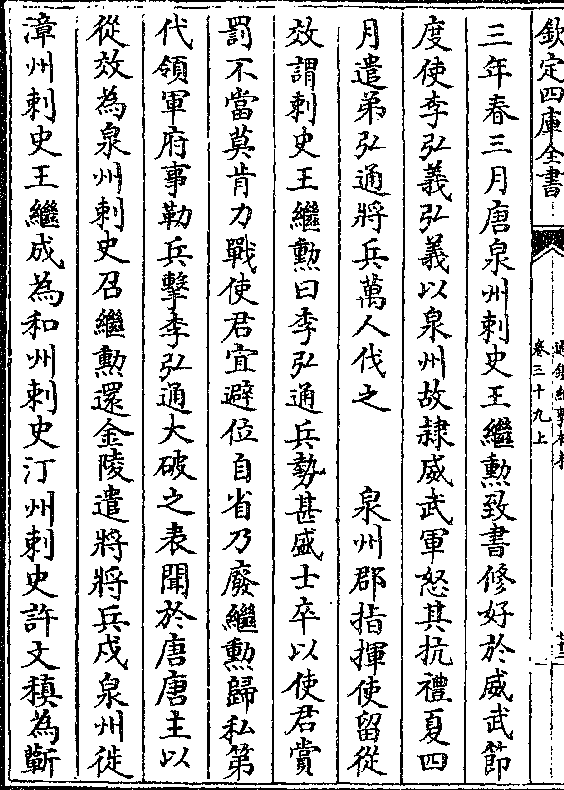 欽定四庫全書
通鑑紀事本末
卷三十九上
三年春三月唐泉州刺史王繼勲致書修好於威武節
度使李弘義弘義以泉州故隸威武軍怒其抗禮夏四
月遣弟弘通將兵萬人伐之　　泉州郡指揮使留從
效謂刺史王繼勲曰李弘通兵勢甚盛士卒以使君賞
罰不當莫肯力戰使君宜避位自省乃廢繼勲歸私第
代領軍府事勒兵擊李弘通大破之表聞於唐唐主以
從效為泉州刺史召繼勲還金陵遣將將兵戍泉州徙
漳州刺史王繼成為和州刺史汀州刺史許文稹為蘄